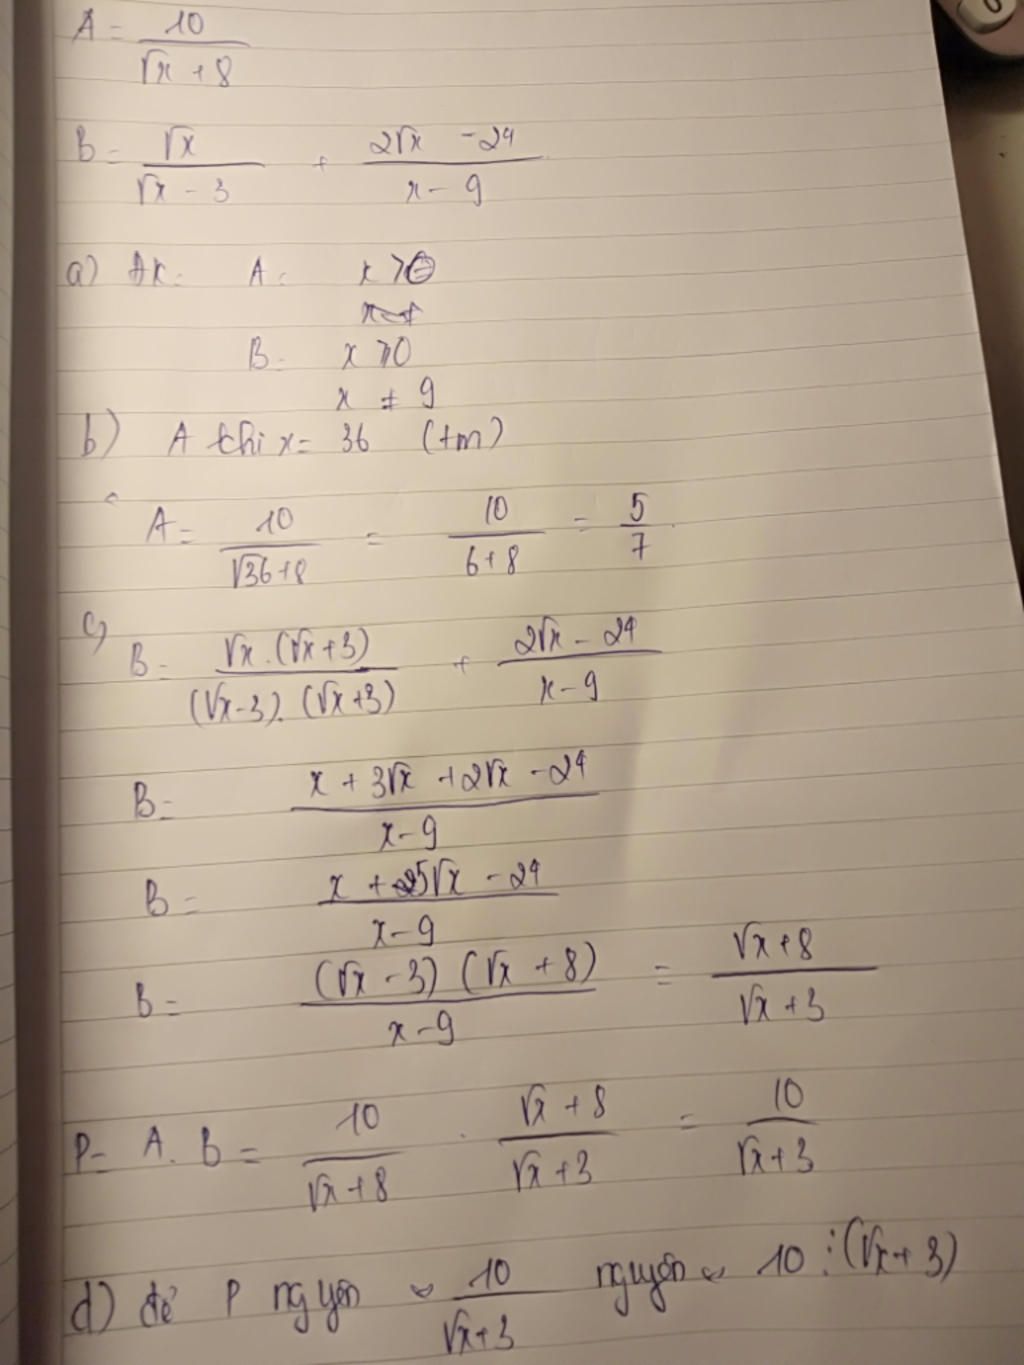 A = 10/(√x + 8)
B = √x/(√x - 3) + (2√x - 24)/(x - 9)
a) ĐK: A: x ≥ 0
B: x ≥ 0
x ≠ 9
b) A khi x = 36 (tm)
A = 10/(√36 + 8) = 10/(6 + 8) = 5/7
c, B = (√x . (√x + 3))/((√x - 3). (√x + 3)) + (2√x - 24)/(x - 9)
B = (x + 3√x + 2√x - 24)/(x - 9)
B = (x + 5√x - 24)/(x - 9)
B = ((√x - 3) (√x + 8))/(x - 9) = (√x + 8)/(√x + 3)
P = A. B = 10/(√x + 8) . (√x + 8)/(√x + 3) = 10/(√x + 3)
d) để P nguyên 10/(√x + 3) nguyên 10 ⋮ (√x + 3)